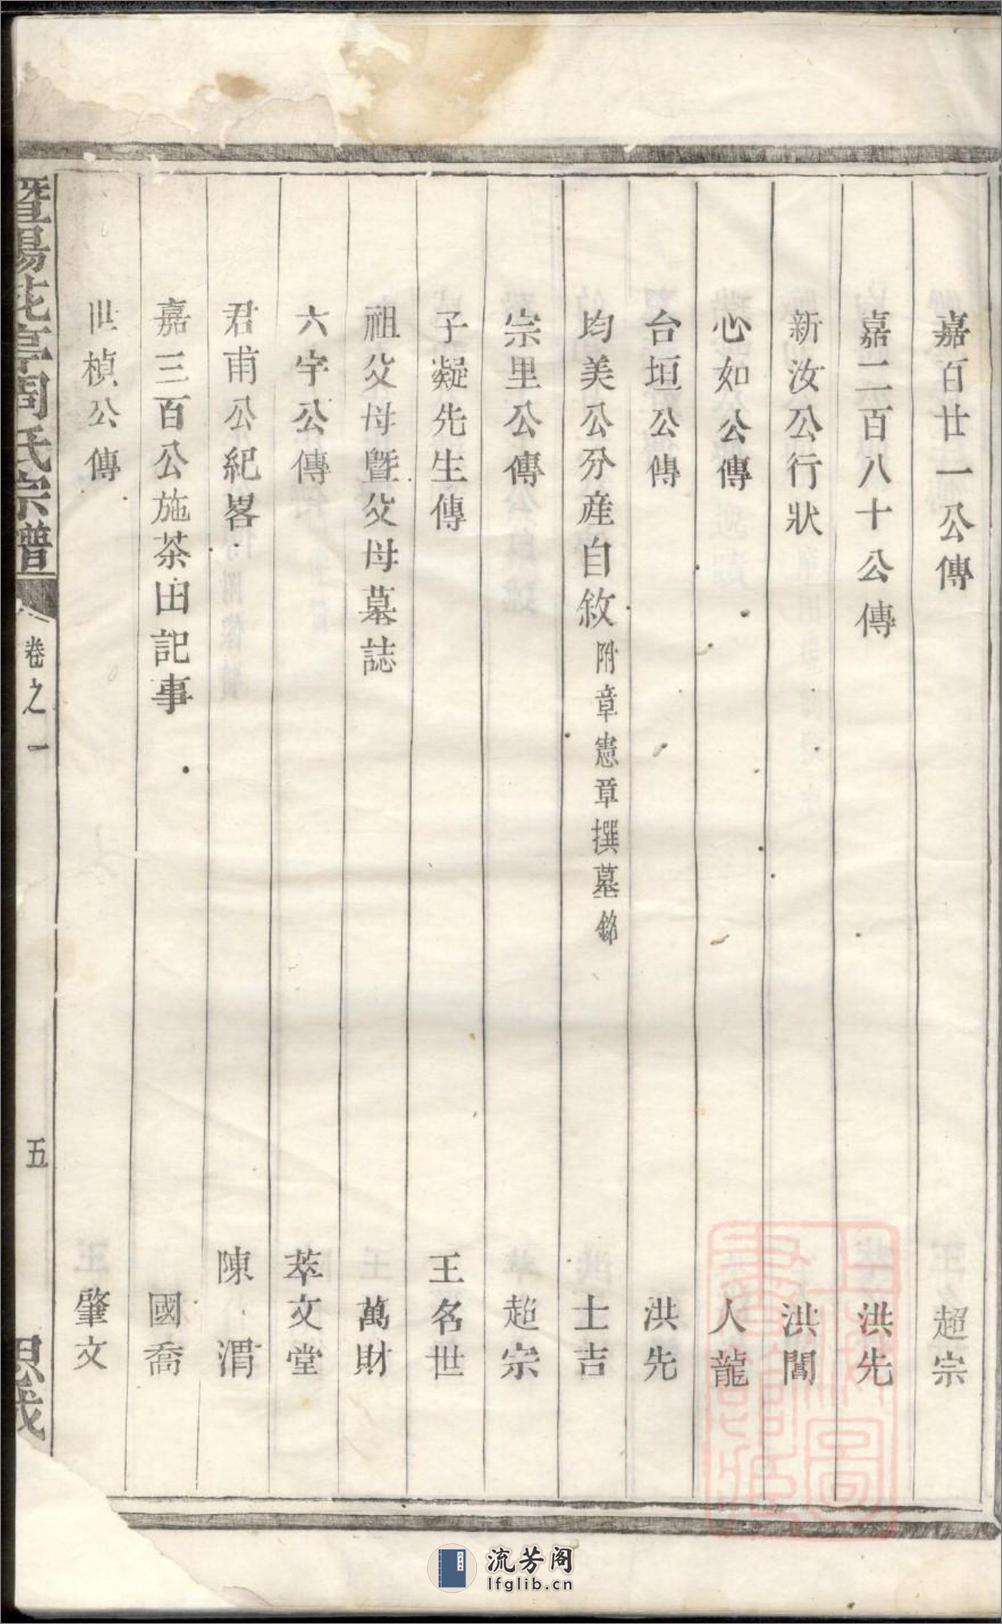 嘉百廿一公傳 超宗
嘉二百八十公傳 洪先
新汝公行狀 洪闇
心如公傳 人龍
台垣公傳 洪先
均美公分產自敘 附章憲章撰墓銘 士吉
宗里公傳 超宗
子凝先生傳 王名世
祖父母暨父母墓誌 萬財
六字公傳 萃文堂
君甫公紀畧 陳渭
嘉三百公施茶田記事 國喬
世楨公傳 肇文
暨陽花亭周氏宗譜 卷之一 五
流芳阁
lfglib.cn